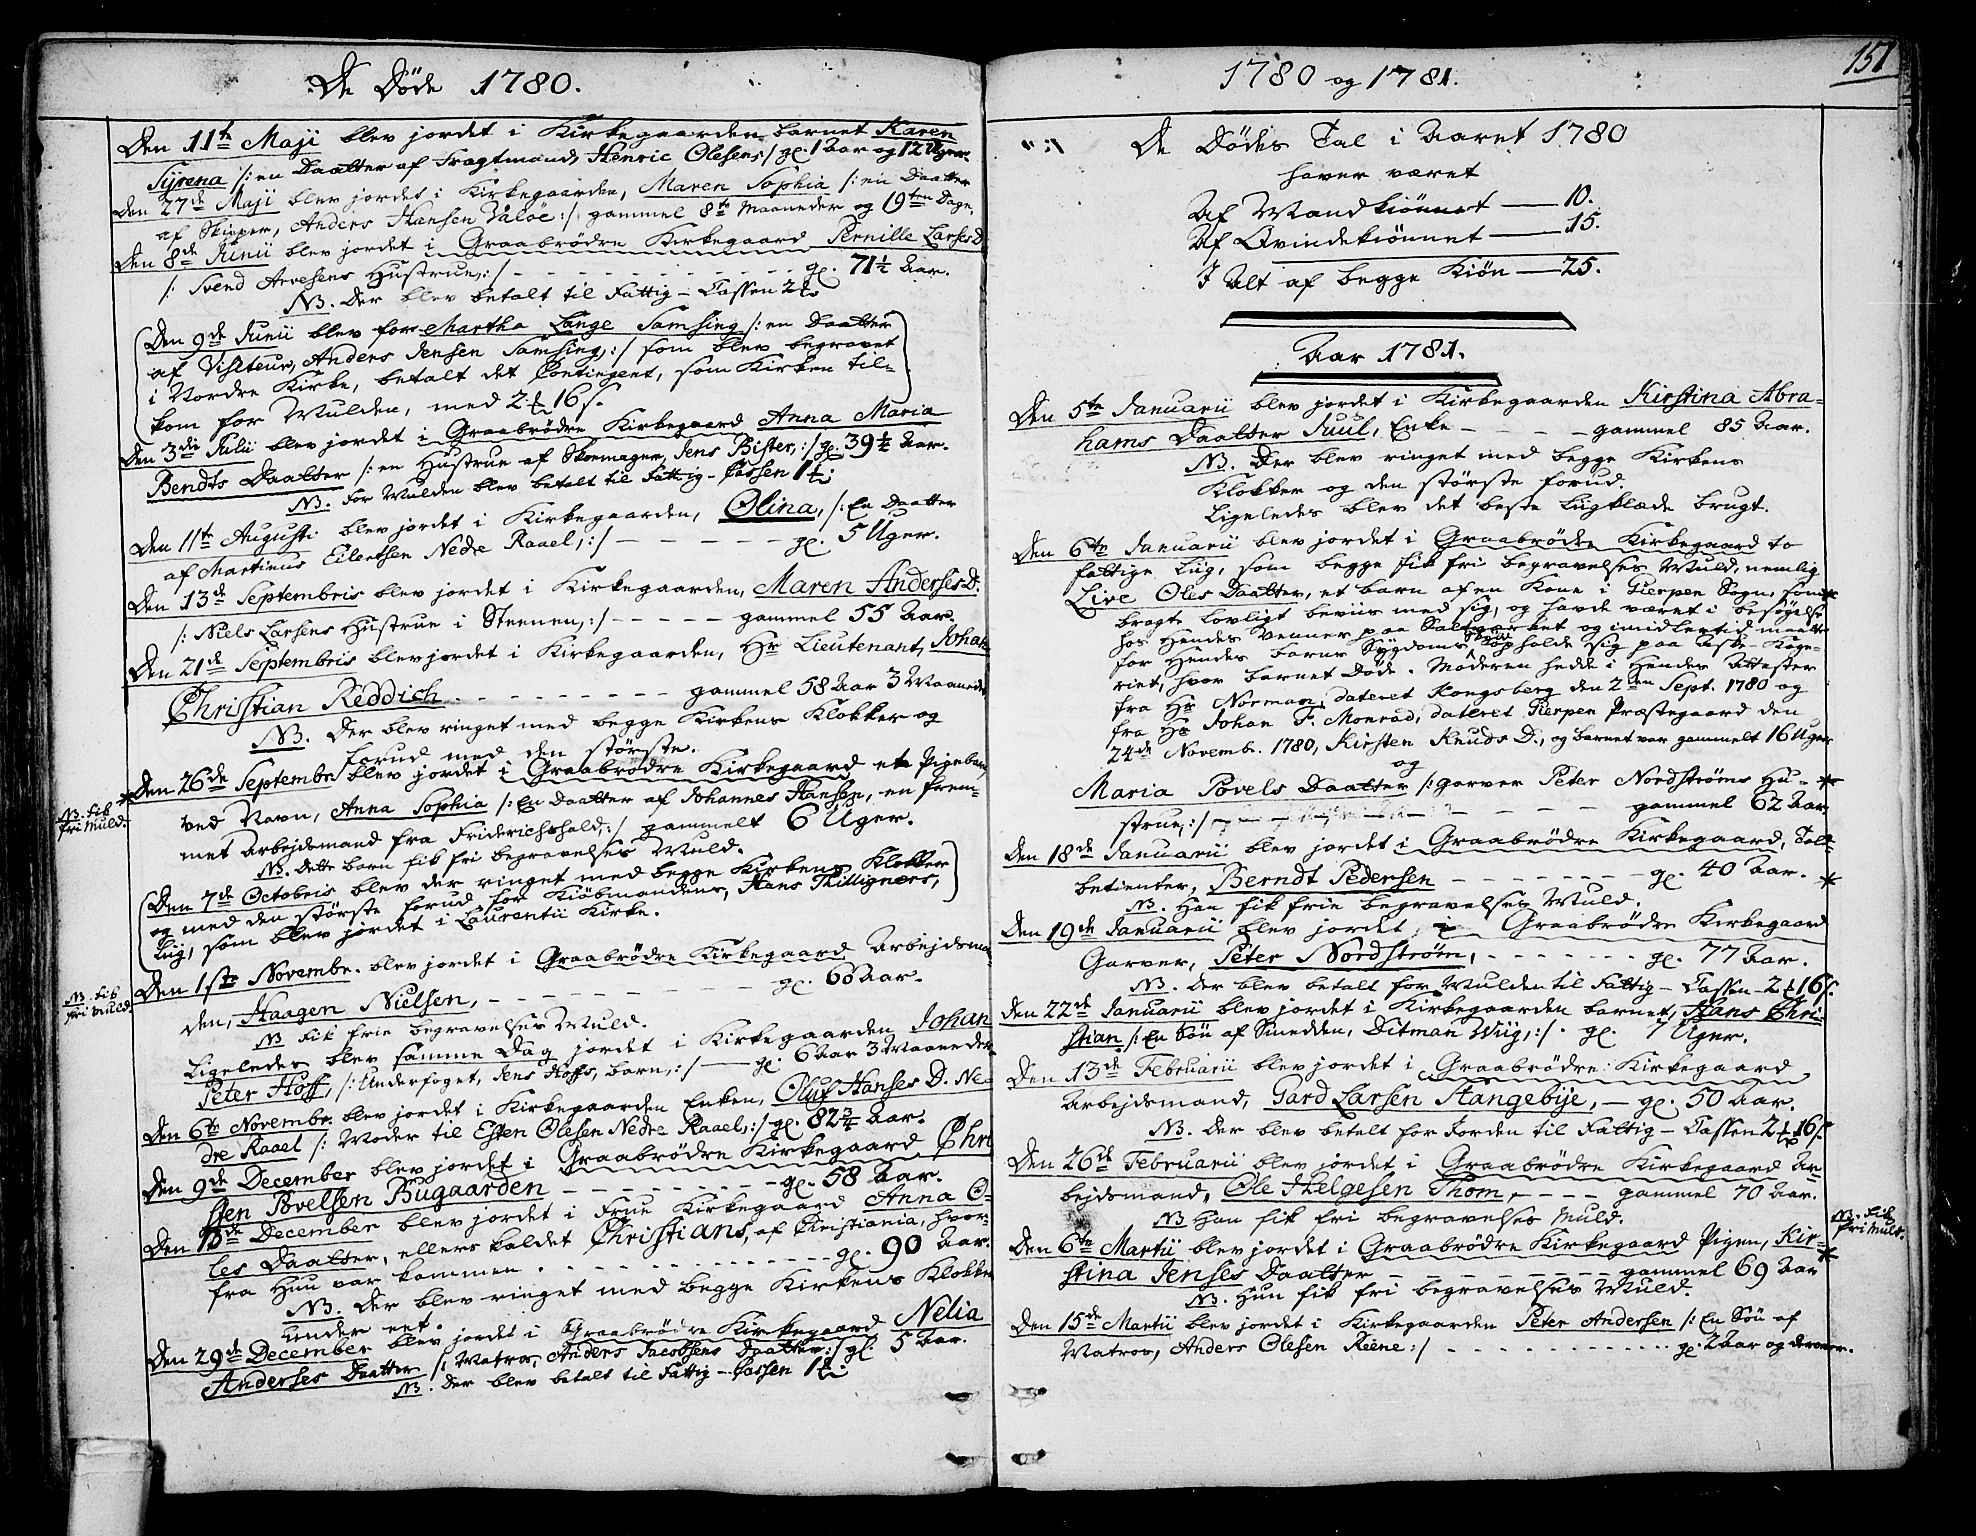 De Døde 1780.
Den 11te Maji blev jordet i Kirkegaarden barnet Karen
Syrena /: en Daatter af Fragtmand, Henric Olesens:/ gl. 1 Aar og 12 Uger.
Den 27de Maji blev jordet i Kirkegaarden, Maren Sophia /: en Daatter
af Skipper, Anders Hansen Valøe:/ gammel 8te Maaneder og 19ten Dage.
Den 8de Junii blev jordet i Graabrødre Kirkegaard Pernille Larses D.
/: Svend Arvesens Hustrue,:/ - - - gl. 71½ Aar.
NB. Der blev betalt til Fattig-Cassen 2
Den 9de Junii blev for Martha Lange Samsing /: en Daatter
af Visiteur, Anders Jensen Samsing,:/ som blev begravet
i Nordre Kirke, betalt det Contingent, som Kirken til-
kom for Mulden, med 2 16 s.
Den 3die Julii blev jordet i Graabrødre Kirkegaard Anna Maria
Bendts Daatter /: en Hustrue af Skoemager, Jens Bister,:/ gl. 39½ Aar.
NB. For Mulden blev betalt til Fattig-Cassen 1
Den 11te Augusti blev jordet i Kirkegaarden, Olina, /: En Daatter
af Martinus Eilertsen Nedre Raael,:/ - - - gl. 5 Uger.
Den 13de Septembris blev jordet i Kirkegaarden, Maren Anderses D.
/: Niels Larsens Hustrue i Steenen,:/ - - - gammel 55 Aar.
Den 21de Septembris blev jordet i Kirkegaarden, Hr Lieutenant, Johan
Christian Reddich - - - gammel 58 Aar 3 Maaneder
NB. Der blev ringet med begge Kirkens Klokker og
forud med den største.
Den 26de Septembr. blev jordet i Graabrødre Kirkegaard et Pigebarn,
NB. fik
fri Muld.
ved Navn, Anna Sophia /: En Daatter af Johannes Hansen, en frem-
met Arbejdsmand fra Friderichshald,:/ gammelt 6 Uger.
NB. Dette barn fik fri begravelses Muld.
Den 7de Octobris blev der ringet med begge Kirkens Klokker
og med den største forud for Kiøbmandens, Hans Thilligners,
Liig, som blev jordet i Laurentii Kirke.
Den 1ste Novembr. blev jordet i Graabrødre Kirkegaard Arbejdsman-
NB. fik
fri Muld.
den, Haagen Nielsen, - - - gl. 60 Aar.
NB fik frie begravelses Muld.
Ligeledes blev samme Dag jordet i Kirkegaarden Johan
Peter Hoff, /: Underfoget, Jens Hoffs, barn,:/ - gl. 6 Aar 3 Maaneder.
Den 6te Novembr. blev jordet i Kirkegaarden Enken, Oluf Hanses D. Ne-
dre Raael /: Moder til Esten Olesen Nedre Raael,:/ gl. 82¾ Aar.
Den 9de December blev jordet i Graabrødre Kirkegaard Chri
sten Povelsen Bugaarden - - - gl. 58 Aar.
Den 16de December blev jordet i Frue Kirkegaard Anna O-
les Daatter, ellers kaldet Christians, af Christiania, hvor-
fra Hun var kommen. - - - gl. 90 Aar.
NB. Der blev ringet med begge Kirkens Klokker
under eet.
Den 29de December blev jordet i Graabrødre Kirkegaard Nelia
Anderses Daatter /: Matros, Anders Jacobsens Daatter:/ gl. 5 Aar.
NB. Der blev betalt til Fattig-Cassen 1
1780 og 1781.
151
De Dødes Tal i Aaret 1780
haver været
Af Mandkiønnet — 10.
Af Qvindekiønnet — 15.
I Alt af begge Kiøn — 25.
Aar 1781.
Den 5te Januarii blev jordet i Kirkegaarden Kirstina Abra-
hams Daatter Juul, Enke - - - gammel 85 Aar.
NB. Der blev ringet med begge Kirkens
Klokker og den største forud.
Ligeledes blev det beste Liigklæde brugt.
Den 6te Januarii blev jordet i Graabrødre Kirkegaard to
fattige Liig, som begge fik fri begravelses Muld, nemlig
Live Oles Daatter, et barn af en Kone i Gierpen Sogn, som
bragte Lovligt beviis med sig, og havde været i besøgelse
hos Hendes Venner paa Saltværket og imidlertid maatte
for Hendes barns Sygdoms Skyld opholde sig paa Aske-Koge-
riet, hvor barnet Døde. Moderen hedde i Hendes Attester
fra Hr Norman, dateret Kongsberg den 2den Sept. 1780 og
fra Hr Johan F. Monrad, dateret Gierpen Præstegaard den
24de Novembr. 1780, Kirsten Knuds D., og barnet var gammelt 16 Uger
og
Maria Povels Daatter /: Garver Peter Nordstrøms Hu-
strue,:/ - - - gammel 62 Aar.
Den 18de Januarii blev jordet i Graabrødre Kirkegaard, Told-
betienter, Berndt Pedersen - - - gl. 40 Aar.
NB. Han fik frie begravelses Muld.
Den 19de Januarii blev jordet i Graabrødre Kirkegaard
Garver, Peter Nordstrøm, - - - gl. 77 Aar.
NB. Der blev betalt for Mulden til Fattig-Cassen 2 16 s.
Den 22de Januarii blev jordet i Kirkegaarden barnet, Hans Chri-
stian /: En Søn af Smedden, Ditman Wiig,:/. gl. 7 Uger.
Den 13de Februarii blev jordet i Graabrødre Kirkegaard
Arbejdsmand, Gard Larsen Stangebye, - gl. 50 Aar.
NB. Der blev betalt for Jorden til Fattig-Cassen 2 16 s.
Den 26de Februarii blev jordet i Graabrødre Kirkegaard Ar
bejdsmand, Ole Helgesen Thom, - - - gammel 70 Aar.
NB Han fik fri begravelses Muld.
Den 6te Martii blev jordet i Graabrødre Kirkegaard Pigen, Kir-
NB. fik
fri Muld.
stina Jenses Daatter - - - gammel 69 Aar
NB. Hun fik fri begravelses Muld.
Den 15de Martii blev jordet i Kirkegaarden Peter Andersen /: En Søn af
Matros, Anders Olesen Reene:/ - - - gl. 2 Aar og derover.